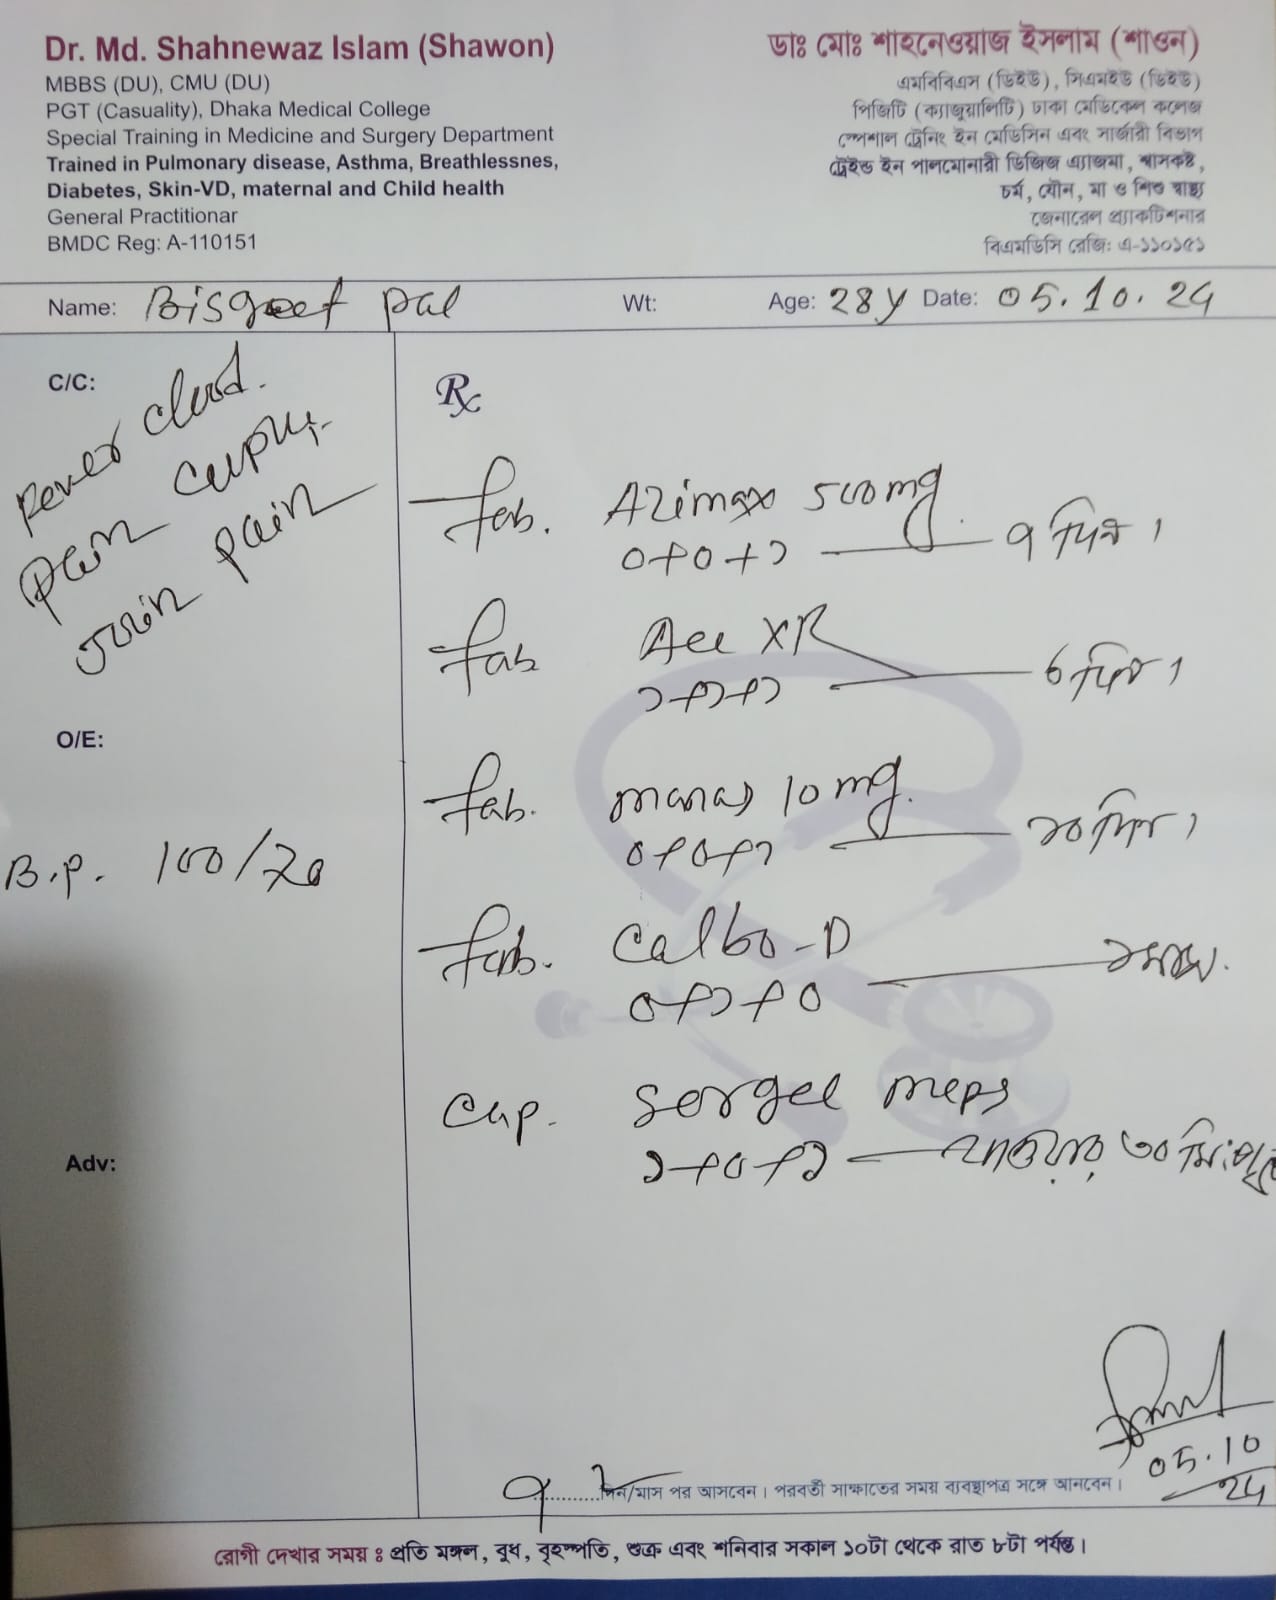 Dr. Md. Shahnewaz Islam (Shawon)
MBBS (DU), CMU (DU)
PGT (Casuality), Dhaka Medical College
Special Training in Medicine and Surgery Department
Trained in Pulmonary disease, Asthma, Breathlessnes,
Diabetes, Skin-VD, maternal and Child health
General Practitionar
BMDC Reg: A-110151
ডাঃ মোঃ শাহনেওয়াজ ইসলাম (শাওন)
এমবিবিএস (ডিইউ), সিএমইউ (ডিইউ)
পিজিটি (ক্যাজুয়ালিটি) ঢাকা মেডিকেল কলেজ
স্পেশাল ট্রেনিং ইন মেডিসিন এবং সার্জারী বিভাগ
ট্রেইন্ড ইন পালমোনারী ডিজিজ এ্যাজমা, শ্বাসকষ্ট,
চর্ম, যৌন, মা ও শিশু স্বাস্থ্য
জেনারেল প্র্যাকটিশনার
বিএমডিসি রেজি: এ-১১০১৫১
Name: Pal Wt: Age: 28y Date: 05.10.24
C/C:
Fever
Pain
pain
O/E:
B.P. 100/70
Adv:
Rx
Tab. Azimax 500mg
০+০+১ — ৭ দিন।
Tab Ace XR
১+১+১ — দিন।
Tab. Monas 10mg.
০+০+১ — ১০ দিন।
Tab. Calbo-D
০+১+০ — ১ মাস.
Cap. Sergel mups
১+০+১ — খাওয়ার ৩০ মি: পূর্বে
05.10
24
৭ দিন/মাস পর আসবেন। পরবর্তী সাক্ষাতের সময় ব্যবস্থাপত্র সঙ্গে আনবেন।
রোগী দেখার সময় ঃ প্রতি মঙ্গল, বুধ, বৃহস্পতি, শুক্র এবং শনিবার সকাল ১০টা থেকে রাত ৮টা পর্যন্ত।